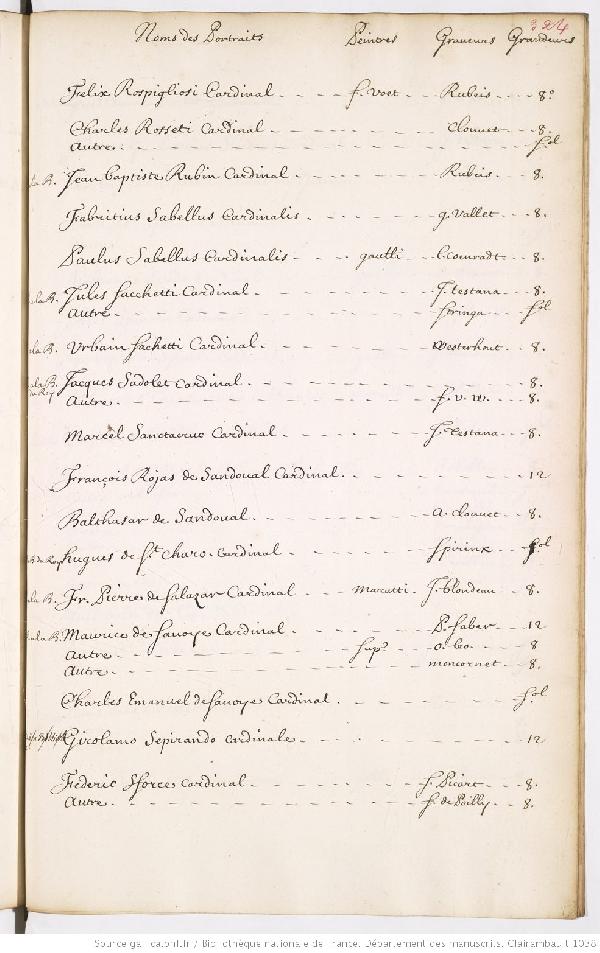 324
Noms des Portraits Peintres Graveurs Grandeurs
Felix Rospigliosi Cardinal - - - f. Voet - - Rubeis - - - 8º
Charles Rosseti Cardinal - - - - - - - - Clouuet - - 8.
Autre. - - - - - - - - - - - fol
la B. Jean baptiste Rubin Cardinal - - - - - - - Rubeis - - 8.
Fabritius Sabellus Cardinalis - - - - - - - g. Vallet - - 8.
Paulus Sabellus Cardinalis - - - gaulli - l. Couuradt - - 8.
la B. Jules Sacchetti Cardinal - - - - - - - J. testana - - 8.
Autre - - - - - - - - - Stringa - - fol
la B. Urbain Sachetti Cardinal - - - - - - - Westerhout - - 8.
ala B. du Roy Jacques Sadolet Cardinal - - - - - - - - - - 8.
Autre - - - - - - - - - f. v. w. - - 8.
Marcel Sanctacruc Cardinal - - - - - - - J. testana - - 8.
François Rojas de Sandoual Cardinal - - - - - - - - 12
Balthasar de Sandoual - - - - - - - - a. Clouuet - - 8.
B. du Roy hugues de St. Charo. Cardinal - - - - - - - Spirinx - - fol
ala B. Fr. Pierre de Salazar Cardinal - - - Maratti - J. Blondeau - - 8.
ala B. Maurice de Sauoye Cardinal - - - - - - - P. faber - - 12
Autre - - - - - - - - - - - 8
Autre - - - - - - - - - moncornet - - 8.
Charles Emanuel de Sauoye Cardinal - - - - - - - - fol
Girolamo Sepirando Cardinale - - - - - - - - - 12
Federic Sforce Cardinal - - - - - - - - f. Picart - - 8.
Autre - - - - - - - - - f. de Poilly - - 8.
Source gallica.bnf.fr / Bibliothèque nationale de France. Département des manuscrits. Clairambault 1038